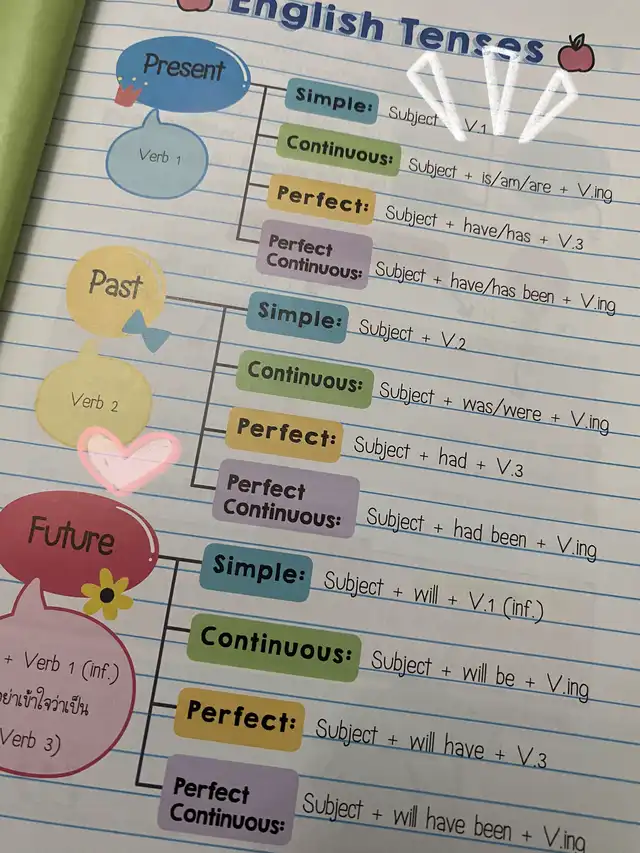 English Tenses
Present
Verb 1
Simple: Subject V.1
Continuous: Subject + is/am/are + V.ing
Perfect: Subject + have/has + V.3
Perfect
Continuous: Subject + have/has been + V.ing
Past
Verb 2
Simple: Subject + V.2
Continuous: Subject + was/were + V.ing
Perfect: Subject + had + V.3
Perfect
Continuous: Subject + had been + V.ing
Future
+ Verb 1 (inf.)
อย่าเข้าใจว่าเป็น
Verb 3)
Simple: Subject + will + V.1 (inf.)
Continuous: Subject + will be + V.ing
Perfect: Subject + will have + V.3
Perfect
Continuous: Subject + will have been + V.ing